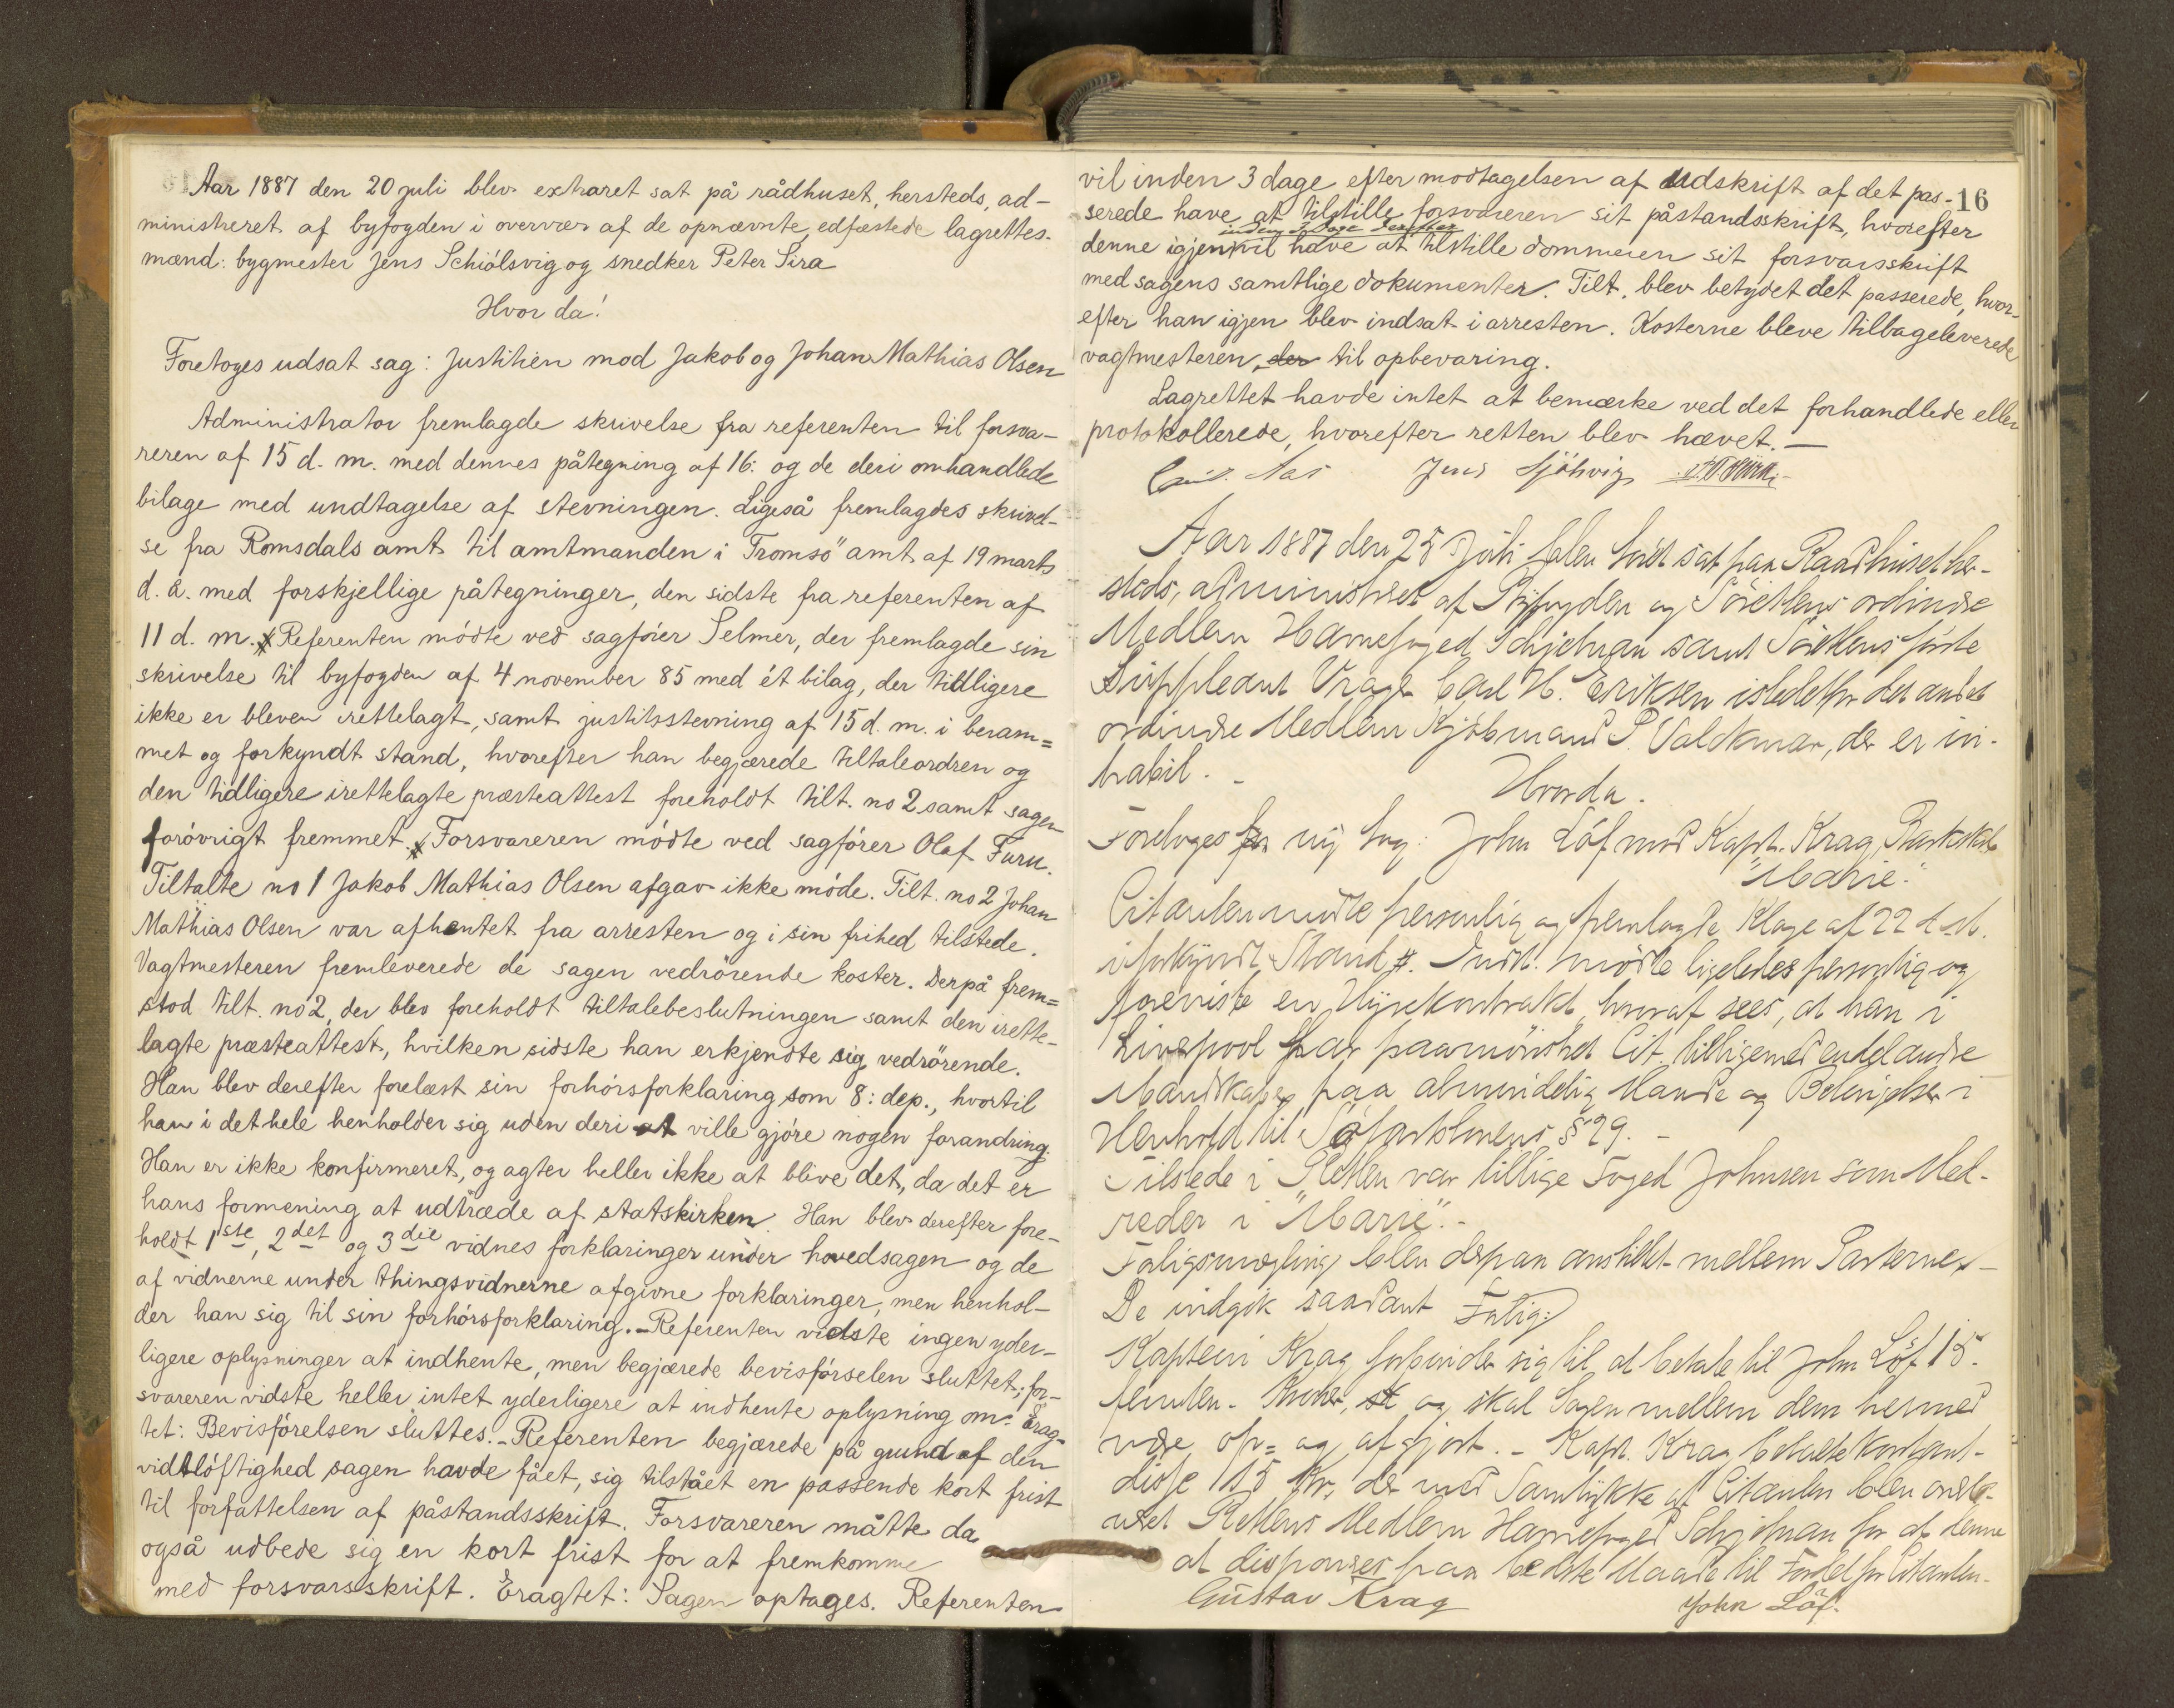 Aar 1887 den 20 juli blev extraret sat på rådhuset, hersteds, ad-
ministreret af byfogden i overvær af de opnævnte, edfæstede lagrettes-
mænd: bygmester Jens Schiölsvig og snedker Peter Sira
Hvor da!
Foretoges udsat sag: Justitien mod Jakob og Johan Mathias Olsen
Administrator fremlagde skrivelse fra referenten til forsva-
reren af 15 d. m. med dennes påtegning af 16: og de deri omhandlede
bilage med undtagelse af stevningen. Ligeså fremlagdes skrivel-
se fra Romsdals amt til amtmanden i Tromsö amt af 19 marts
d. å. med forskjellige påtegninger, den sidste fra referenten af
11 d. m. Referenten mödte ved sagförer Selmer, der fremlagde sin
skrivelse til byfogden af 4 november 85 med ét bilag, der tidligere
ikke er bleven irettelagt, samt justitsstevning af 15 d. m. i beram=
met og forkyndt stand, hvorefter han begjærede tiltaleordren og
den tidligere irettelagte præsteattest foreholdt tilt. no 2 samt sagen
forövrigt fremmet. Forsvareren mödte ved sagförer Olaf Furu.
Tiltalte no 1 Jakob Mathias Olsen afgav ikke möde. Tilt. no 2 Johan
Mathias Olsen var afhentet fra arresten og i sin frihed tilstede.
Vagtmesteren fremleverede de sagen vedrörende koster. Derpå frem=
stod tilt. no 2, der blev foreholdt tiltalebeslutningen samt den irette-
lagte præsteattest, hvilken sidste han erkjendte sig vedrörende.
Han blev derefter forelæst sin forhörsforklaring som 8: dep., hvortil
han i det hele henholder sig uden deri at ville gjöre nogen forandring.
Han er ikke konfirmeret, og agter heller ikke at blive det, da det er
hans formening at udtræde af statskirken. Han blev derefter fore-
holdt 1ste, 2det og 3die vidnes forklaringer under hovedsagen og de
af vidnerne under thingsvidnerne afgivne forklaringer, men henhol-
der han sig til sin forhörsforklaring. - Referenten vidste ingen yder-
ligere oplysninger at indhente, men begjærede bevisförselen sluttet; for-
svareren vidste heller intet yderligere at indhente oplysning om. Erag-
tet: Bevisförelsen sluttes. - Referenten begjærede på grund af den
vidtlöftighed sagen havde fået, sig tilstået en passende kort frist
til forfattelsen af påstandsskrift. Forsvareren måtte da
også udbede sig en kort frist for at fremkomme
med forsvarsskrift. Eragtet: Sagen optages. Referenten
16
vil inden 3 dage efter modtagelsen af udskrift af det pas-
serede have at tilstille forsvareren sit påstandsskrift, hvorefter
inden 3 dage derefter
denne igjen vil have at tilstille dommeren sit forsvarsskrift
med sagens samtlige dokumenter. Tilt. blev betydet det passerede, hvor-
efter han igjen blev indsat i arresten. Kosterne bleve tilbageleverede
vagtmesteren, der til opbevaring.
Lagrettet havde intet at bemærke ved det forhandlede eller
protokollerede, hvorefter retten blev hævet. -
Jens Sjölsvig
Aar 1887 den 25 Juli blev Söret sat paa Raadhuset her-
steds, administreret af Byfogden og Sörettens ordinære
Medlem Havnefoged Schjelman samt Sörettens förste
Suppleant Vrager Carl H. Eriksen istedetfor det andet
ordinære Medlem Kjöbmand P. Valckmar, der er in-
habil. -
Hvorda.
Foretoges ny Sag: John Löf mod Kapt. Krag, Barkskib
"Marie."
Citanten mödte personlig og fremlagde Klage af 22 d. M.
i forkyndt Stand. Indst. mödte ligeledes personlig og
foreviste en Hyrekontrakt, hvoraf sees, at han i
Liverpool har paamönstret Cit. tilligemed endel andre
Mandskaber paa almindelig Maade og Betingelser i
Henhold til Söfartslovens § 29. -
Tilstede i Retten var tillige Foged Johnsen som Med-
reder i "Marie". -
Forligsmægling blev derpaa anstillet mellem Parterne. -
De indgik saadant Forlig:
Kaptein Krag forbinder sig til at betale til John Löf 15 -
femten - Kroner, og skal Sagen mellem dem hermed
være op= og afgjort. - Kapt. Krag betalte kontant
disse 15 Kr., der med Samtykke af Citanten blev overle-
veret Rettens Medlem Havnefoged Schjelman for af denne
at disponeres paa bedste Maade til Fordel for Citanten.
Gustav Krag
John Löf.